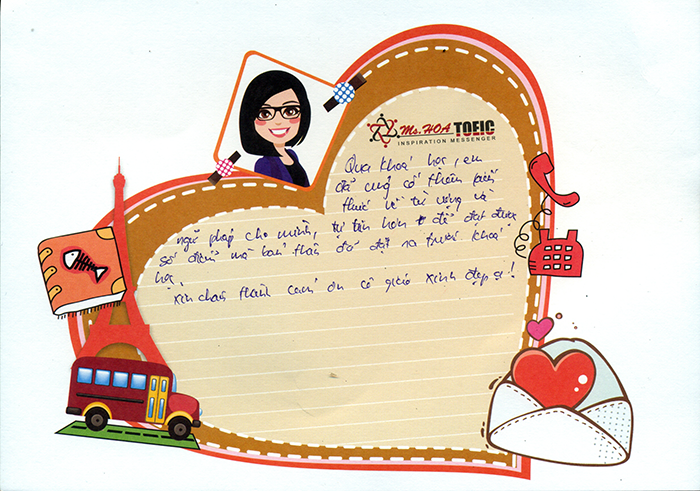 Ms. HOA TOEIC
INSPIRATION MESSENGER
Qua khoá học, em
đã củng cố thêm kiến
thức về từ vựng và
ngữ pháp cho mình, tự tin hơn để đạt được
số điểm mà bản thân đã đặt ra trước khoá
học.
Xin chân thành cảm ơn cô giáo xinh đẹp ạ!